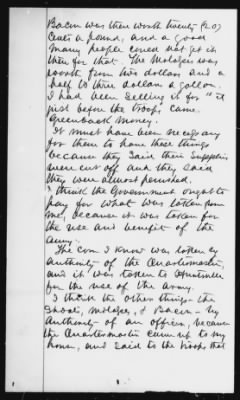 Bacon was then worth twenty (20)
Cents a pound, and a good
many people could not get it
then for that. The Molasses was
worth from two dollars and a
half to three dollars a gallon.
I had been selling it for it
just before the troops came.
Greenback Money.
It must have been necessary
for them to have these things
because they said their supplies
were cut off and they said
they were almost perished.
I think the Government ought to
pay for what was taken from
me, because it was taken for
the use and benefit of the
army.
The corn I know was taken by
authority of the Quartermaster,
and it was taken to
for the use of the army.
I think the other things - the
Shoats, Molasses, & Bacon - by
Authority of an officer, because
the Quartermaster came up to my
house, and said to the troops that